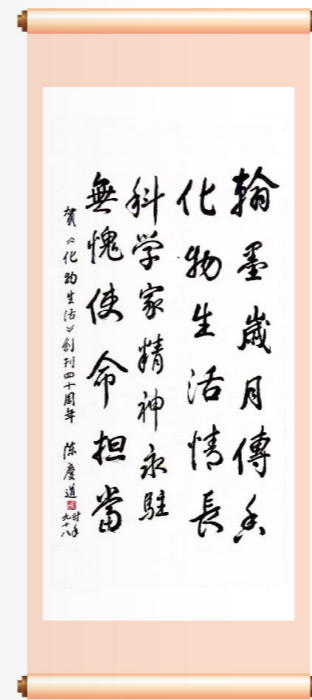 翰墨歲月傳香
化物生活情長
科学家精神永駐
無愧使命担當
賀《化物生活》創刊四十周年 陈慶道
时年
九十八